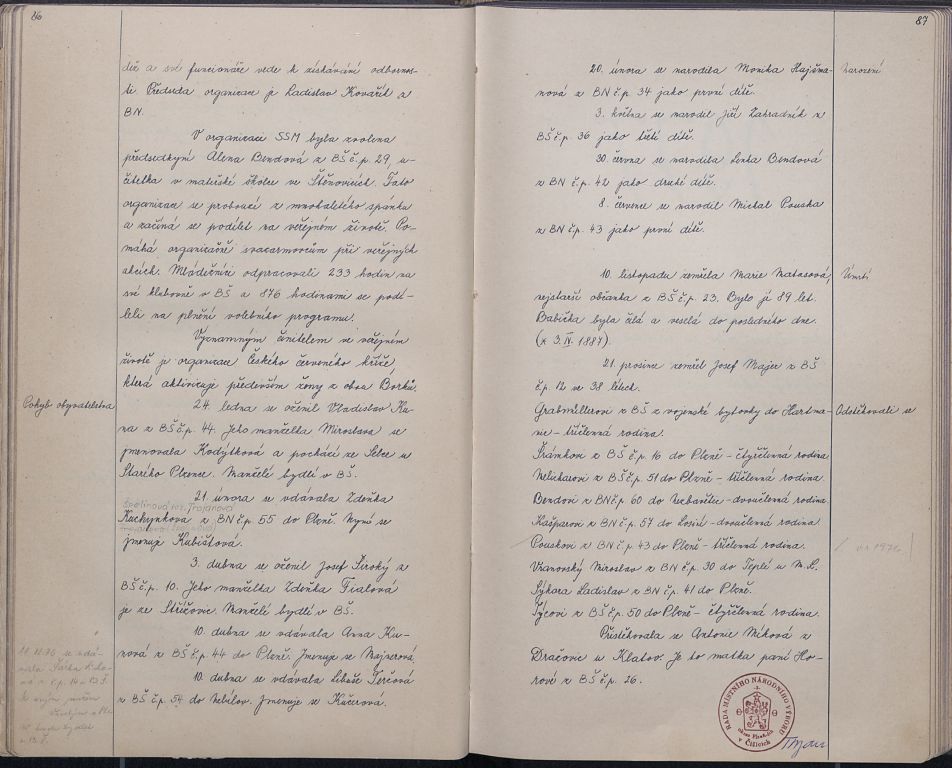 86
díž a své funkcionáře vede k získávání odbornos-
ti. Předseda organizace je Ladislav Kovařík z
BN.
V organizaci SSM byla zvolena
předsedkyní Alena Bendová z BŠ č.p. 29, u-
čitelka v mateřské školce ve Štěnovicích. Tato
organizace se probouzí z mnohaletého spánku
a začíná se podílet na veřejném životě. Po-
máhá organizačně svazarmovcům při veřejných
akcích. Mládežníci odpracovali 233 hodin na
své klubovně v BŠ a 876 hodinami se podí-
leli na plnění volebního programu.
Významným činitelem ve veřejném
životě je organizace Českého červeného kříže,
která aktivizuje především ženy z obou Borků.
Pohyb obyvatelstva
24. ledna se oženil Vladislav Ku-
na z BŠ č.p. 44. Jeho manželka Miroslava se
jmenovala Kodýtková a pochází ze Sedce u
Starého Plzence. Manželé bydlí v BŠ.
21. února se vdávala Zdeňka
roz. Trojanová
Kuchynková z BN č.p. 55 do Plzně. Nyní se
jmenuje Kubištová.
3. dubna se oženil Josef Široký z
BŠ č.p. 10. Jeho manželka Zdeňka Fialová
je ze Střížovic. Manželé bydlí v BŠ.
10. dubna se vdávala Anna Ku-
nová z BŠ č.p. 44 do Plzně. Jmenuje se Majnerová.
10. dubna se vdávala Libuše Terčová
z BŠ č.p. 54 do Nebílov. Jmenuje se Kučerová.
se vdá-
vala Šárka
č.p. 14
87
20. února se narodila Monika Hajšma-
nová z BN č.p. 34 jako první dítě.
Narození
3. května se narodil Jiří Zahradník z
BŠ č.p. 36 jako třetí dítě.
30. června se narodila Lenka Bendová
z BN č.p. 42 jako druhé dítě.
8. července se narodil Michal Pouska
z BN č.p. 43 jako první dítě.
10. listopadu zemřela Marie Matasová,
Úmrtí
nejstarší občanka z BŠ č.p. 23. Bylo jí 89 let.
Babička byla čilá a veselá do posledního dne.
(x 3. IV. 1887).
21. prosince zemřel Josef Majer z BŠ
č.p. 12 ve 38 letech.
Grabmüllerovi z BŠ z vojenské bytovky do Hartma-
Odstěhovali se
nic - tříčlenná rodina.
Šránkovi z BŠ č.p. 16 do Plzně - čtyřčlenná rodina
Nelikarovi z BŠ č.p. 51 do Plzně - tříčlenná rodina
Bendovi z BN č.p. 60 do Nezbavětic - dvoučlenná rodina
Kašparovi z BN č.p. 57 do Losiné - dvoučlenná rodina
Pouskovi z BN č.p. 43 do Plzně - tříčlenná rodina.
Vranovský Miroslav z BN č.p. 30 do Teplé u M.L.
Sýkora Ladislav z BN č.p. 41 do Plzně.
Týcovi z BŠ č.p. 50 do Plzně - čtyřčlenná rodina.
Přistěhovala se Antonie Míková z
Dračovic u Klatov. Je to matka paní Ho-
rové z BŠ č.p. 26.
RADA MÍSTNÍHO NÁRODNÍHO VÝBORU
v Čížicích